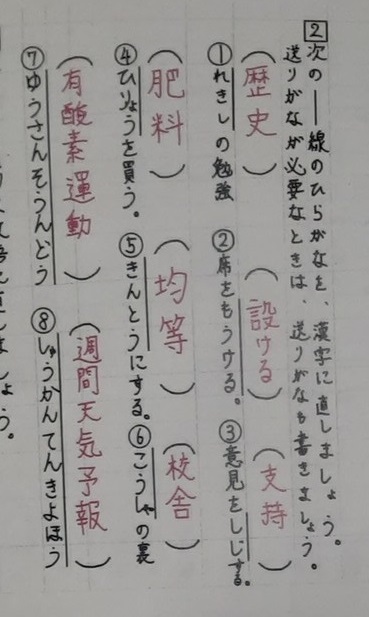 2 次の――線のひらがなを、漢字に直しましょう。
送りがなが必要なときは、送りがなも書きましょう。
(歴史)
①れきしの勉強
(設ける)
②席をもうける。
(支持)
③意見をしじする。
(肥料)
④ひりょうを買う。
(均等)
⑤きんとうにする。
(校舎)
⑥こうしゃの裏
(有酸素運動)
⑦ゆうさんそうんどう
(週間天気予報)
⑧しゅうかんてんきよほう
直しましょう。